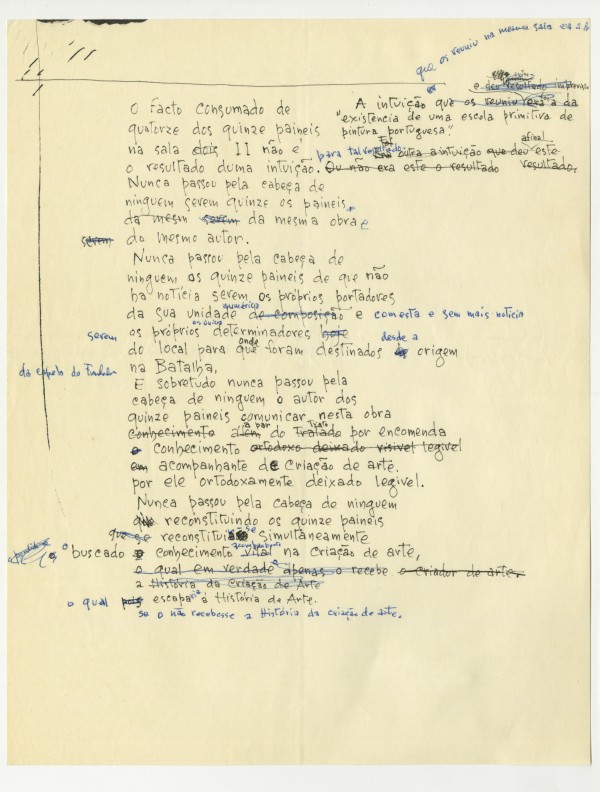 que os reuniu na mesma sala
e deu resultado
O facto consumado de
quatorze dos quinze paineis
na sala dois II não é
o resultado duma intuição.
Nunca passou pela cabeça de
ninguem serem quinze os paineis
da mesm serem da mesma obra e
serem do mesmo autor.
A intuição que os reuniu era a da
"existência de uma escola primitiva de
pintura portuguesa".
afinal
para tal resultado. outra a intuição que deu este
Ou não era este o resultado resultado.
Nunca passou pela cabeça de
ninguem os quinze paineis de que não
ha noticia serem os próprios portadores
numérica
da sua unidade de composição e com esta e sem mais noticia
serem os próprios determinadores
onde desde a
do local para que foram destinados origem
da capela do Fundador na Batalha,
E sobretudo nunca passou pela
cabeça de ninguem o autor dos
quinze paineis comunicar nesta obra
a par
conhecimento além do Tratado por encomenda
o conhecimento ortodoxo deixado visivel legivel
em acompanhante de criação de arte.
por ele ortodoxamente deixado legivel.
Nunca passou pela cabeça de ninguem
que reconstituindo os quinze paineis
que se reconstitui simultaneamente
o buscado conhecimento vital na criação de arte,
o qual em verdade apenas o recebe o criador de arte,
a História da Criação de Arte
o qual pois escapa á História de Arte.
se o não recebesse a História da criação de arte.